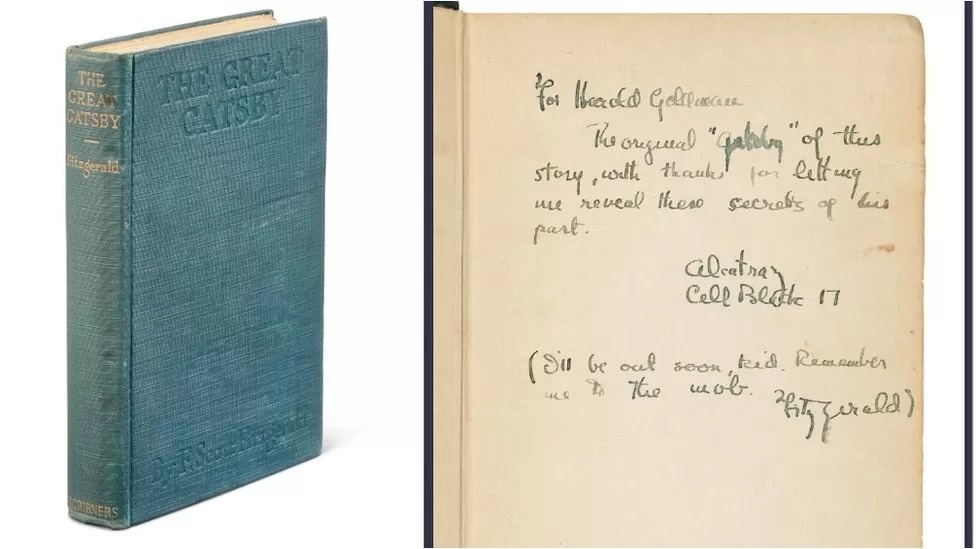 THE
GREAT
GATSBY
Fitzgerald
SCRIBNERS
THE GREAT
GATSBY
By F. Scott Fitzgerald
For Harold Goldman
The original "Gatsby" of this
story, with thanks for letting
me reveal these secrets of his
past.
Alcatraz
Cell Block 17
(I'll be out soon, kid. Remember
me to the mob. Fitzgerald)